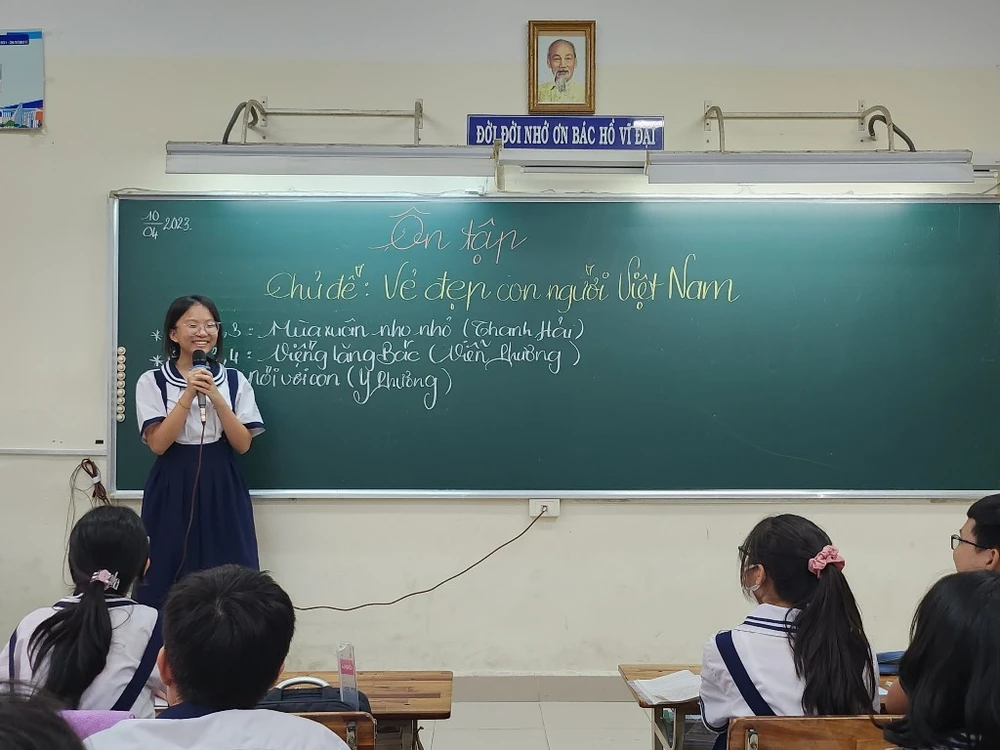 ĐỜI ĐỜI NHỚ ƠN BÁC HỒ VĨ ĐẠI
10
04 2023.
Ôn tập
Chủ đề: Vẻ đẹp con người Việt Nam
* , 3 : Mùa xuân nho nhỏ (Thanh Hải)
* , 4 : Viếng lăng Bác (Viễn Phương)
Nói với con (Y Phương)